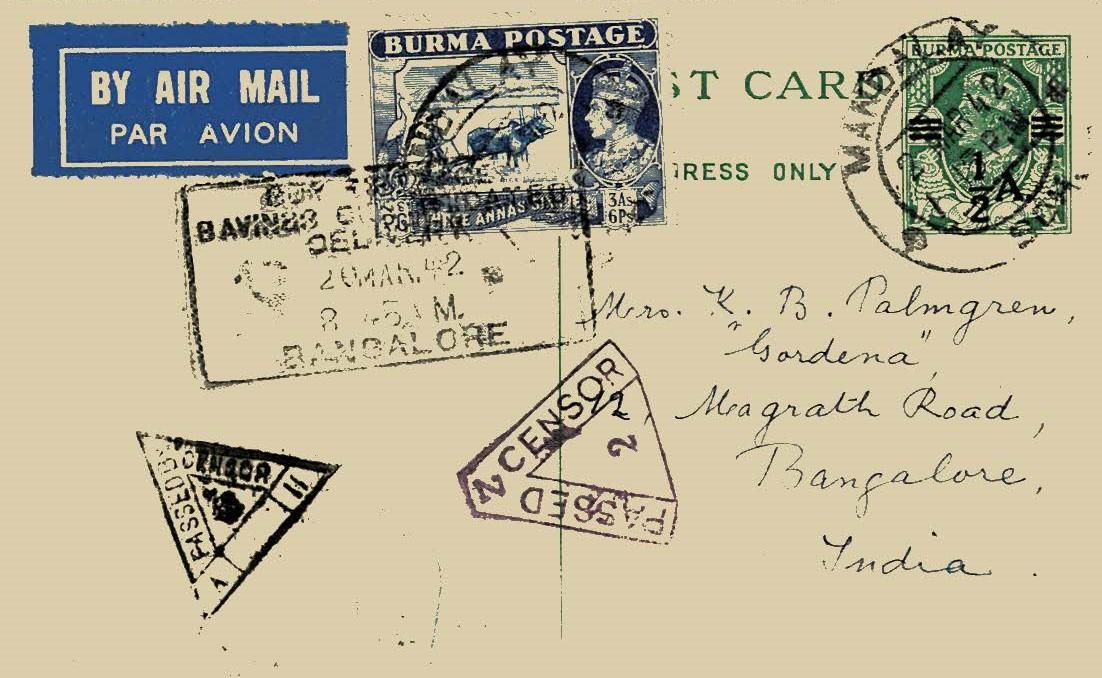 BY AIR MAIL
PAR AVION
BURMA POSTAGE
ANNAS
3As
6Ps
ST CARD
RESS ONLY
BURMA POSTAGE
1/2 A
MANDALAY
42
SAVINGS
DELIVERY
26 MAR. 42
8 45 A M.
BANGALORE
Mrs. K. B. Palmgren,
"Gordena",
12, Magrath Road,
Bangalore,
India.
PASSED BY
CENSOR
PASSED
CENSOR
2